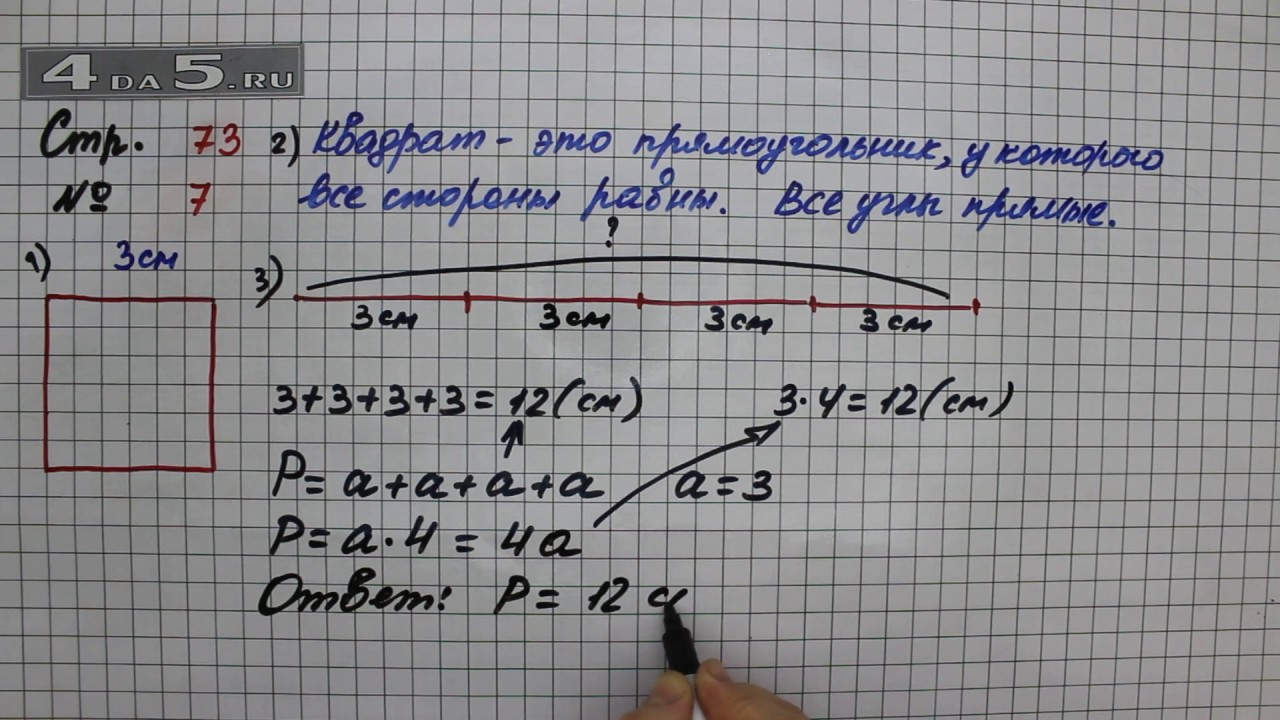 4DA5.RU
Стр. 73
№ 7
2) Квадрат - это прямоугольник, у которого
все стороны равны. Все углы прямые.
1) 3 см
3) ?
3 см 3 см 3 см 3 см
3+3+3+3=12(см) 3·4=12(см)
P= a+a+a+a a=3
P= a·4 = 4a
Ответ: P= 12 с